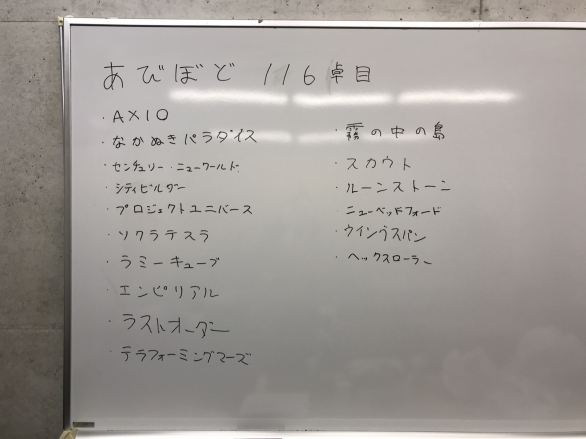 あびぼど 116卓目
・AXIO
・なかぬきパラダイス
・センチュリー・ニューワールド
・シティビルダー
・プロジェクトユニバース
・ソクラテスラ
・ラミーキューブ
・エンピリアル
・ラストオーダー
・テラフォーミングマーズ
・霧の中の島
・スカウト
・ルーンストーン
・ニューベッドフォード
・ウイングスパン
・ヘックスローラー